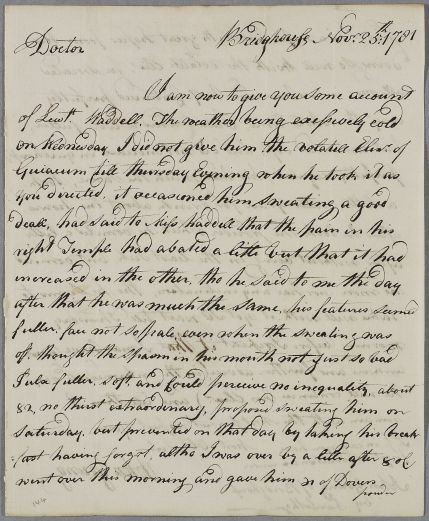 Bridghouse Novr. 25th. 1781
Doctor
I am now to give you some account
of Lieutt. Waddell. The weather being exessively cold
on Wednesday I did not give him the volatile Elixr. of
Guiacum till thursday Evening when he took it as
you directed. it occasioned him sweating a good
deall, had said to Miss Waddell that the pain in his
right Temple had abated a litle but that it had
increased in the other. tho he said to me the day
after that he was much the same, his features seemed
fuller. face not so pale, even when the sweating was
of. thought the spasm in his mouth not just so bad
Pulse fuller, soft and could perceive no inequality, about
82, no thirst extraordinary, proposed sweating him on
Saturday, but prevented on that day by taking his break
fast having forgot, altho I was over by a litle after 8 oC.
went over this morning and gave him of Dovers
powder